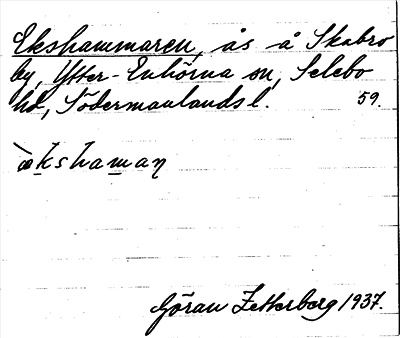 Ekshammaren, ås å Skabro
by, Ytter-Enhörna sn, Selebo
hd, Södermanlands l. 59.
`ækshaman
Göran Zetterberg 1937.